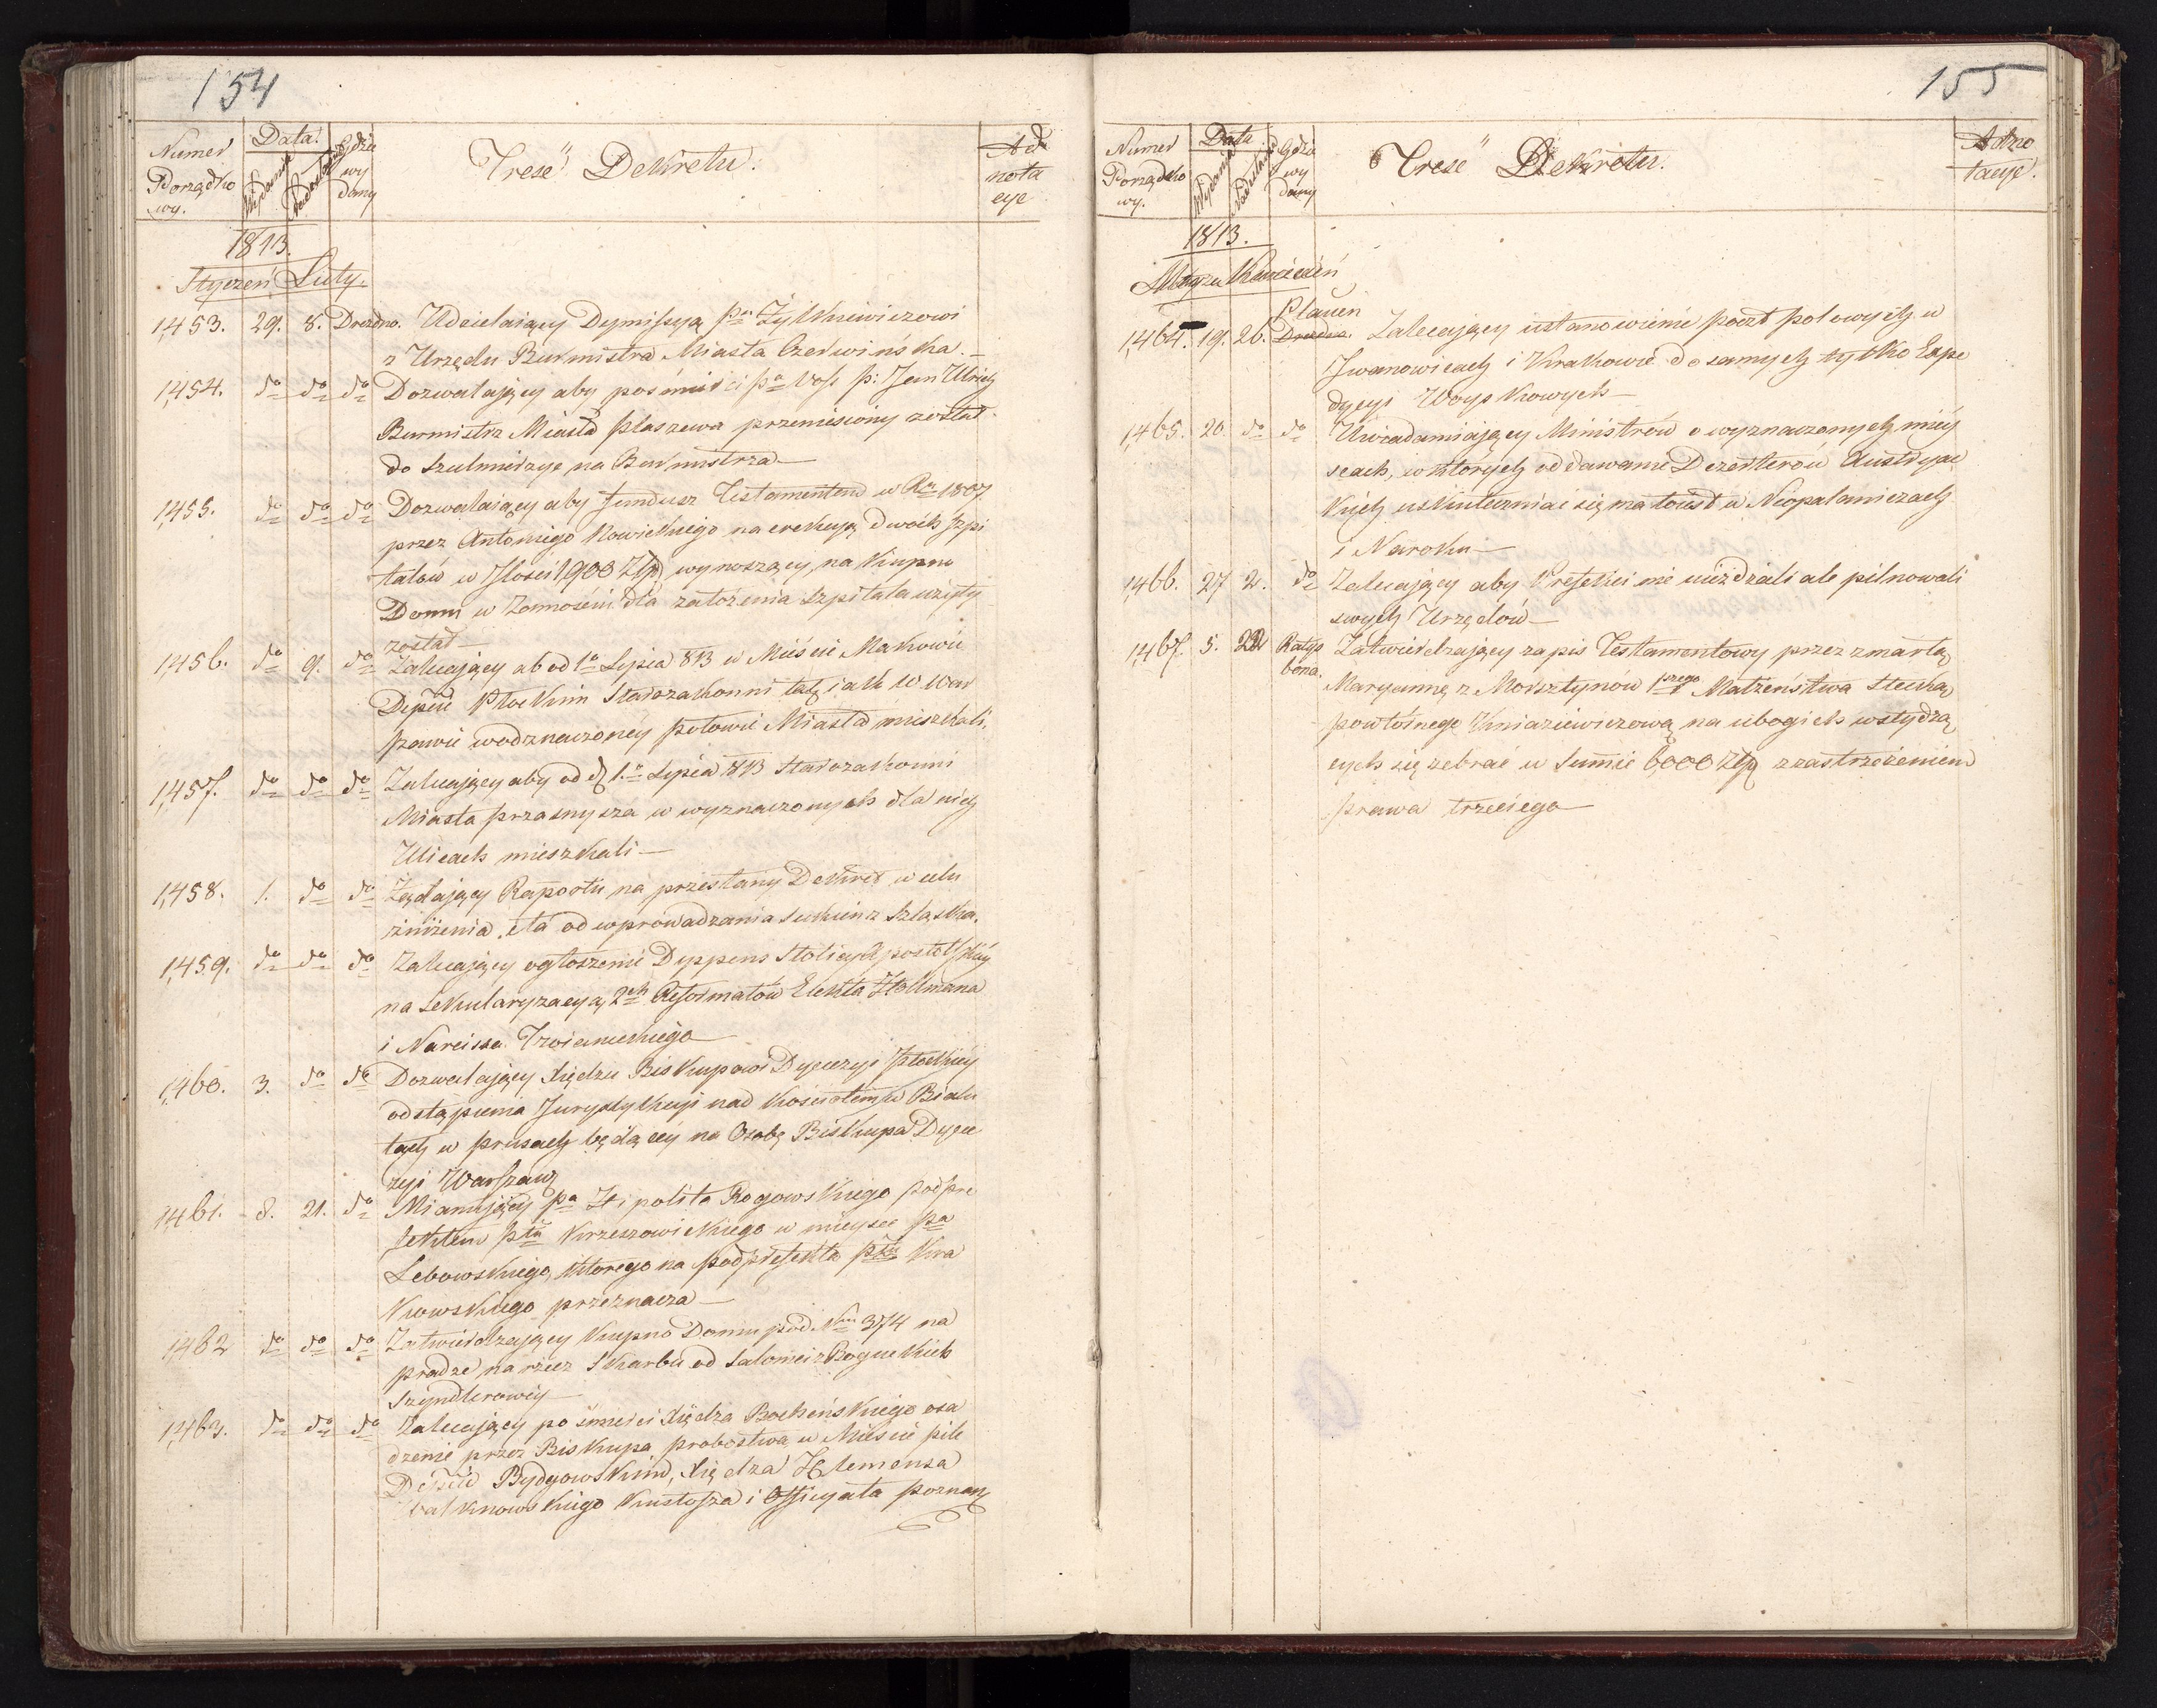 154
Numer Porządko wy. Data. Wydania Nadesłania Gdzie wy dany Treść Dekretu. Ad nota cye
1813.
Styczeń Luty.
1,453. 29. 8. Drezdno. Udzielaiący Dymissyą Pu Żyłkiewiczowi
z Urzędu Burmistra Miasta Czerwińska.—
1,454. do do do Dozwalaiący aby po śmierci Pa Voss P: Jan Ulrich
Burmistrz Miasta Płaszewa przeniesiony został
do Szulmierzyc na Burmistrza—
1,455. do do do Dozwalaiący aby fundusz Testamentem w Ru 1807
przez Antoniego Nowickiego na erekcyą dwóch Szpi
talów w Jlości 1900 Złp wynoszący, na Kupno
Domu w Zamościu dla założenia Szpitala użyty
został—
1,456. do 9. do Zalecający ab od 1o Lipca 813 w Mieście Makowie
Depcie Płockim Starozakonni tak jak w War
szawie w odznaczonéy połowie Miasta mieszkali.
1,457. do do do Zalecający aby od d 1.o Lipca 813 Starozakonni
Miasta Przasnysza w wyznaczonych dla nich
Ulicach mieszkali—
1,458. 1. do do Żądający Raportu na przesłany Dekret w celu
zniżenia cła od wprowadzania Sukien z Szląska.
1,459. do do do Zalecający ogłoszenie Dyspens Stolicy Apostolskiéy
na Sekularyzacyą 2ch Reformatów Elekta Hollmana
i Narcissa
1,460. 3. do do Dozwalający Xiędzu Biskupowi Dyecezyi Płockiéy
odstąpienia Jurysdykcyi nad Kościołem w Biału
tach w Prusach będącéy na Osobę Biskupa Dyece
zyi Warszaw
1,461. 8. 21. do Mianujący Pa Hipolita Rogowskiego Podpre
fektem Ptu Krzeszowickiego w mieysce Pa
Lebowskiego, którego na podprefekta Ptu Kra
kowskiego przeznacza—
1,462 do do do Zatwierdzający Kupno Domu pod Nm 374 na
Pradze na rzecz Skarbu od Salomei z Boguckich
Szyndlerowéy—
1,463. do do do Zalecający po śmierci Xiędza Bocheńskiego osa
dzenie przez Biskupa probostwa w Mieście Pile
Depcie Bydgowskim, Xiędza Klemensa
Kustosza i Officyała Poznań
155
Numer Porządko wy. Data Wydania Nadesłania Gdzie wy dany Treść Dekretu. Adno tacye.
1813.
Marzec Kwiecień
Plauen
1,464. 19. 26. Drezdno. Zalecający ustanowienie poczt polowych w
Jwanowicach i Krakowie do samych tylko Expe
dycyi Woyskowych—
1,465. 20. do do Uwiadamiający Ministrów o wyznaczonych miéy
scach, w których oddawanie Dezerterów Austryac
kich uskuteczniać się ma to iest w Niepołomicach
i Naroku—
1466. 27 2. do Zalecający aby Prefekci nie uieżdżali ale pilnowali
swych Urzędów—
1,467. 5. 22 Ratys bona. Zatwierdzający zapis Testamentowy przez zmarłą
Maryannę z Morsztynów 1szego Małżeństwa Stecką
powtórnego Kniaziewiczową na ubogich wstydzą
cych się żebrać w Summie 6000 Złp z zastrzeżeniem
prawa trzeciego—